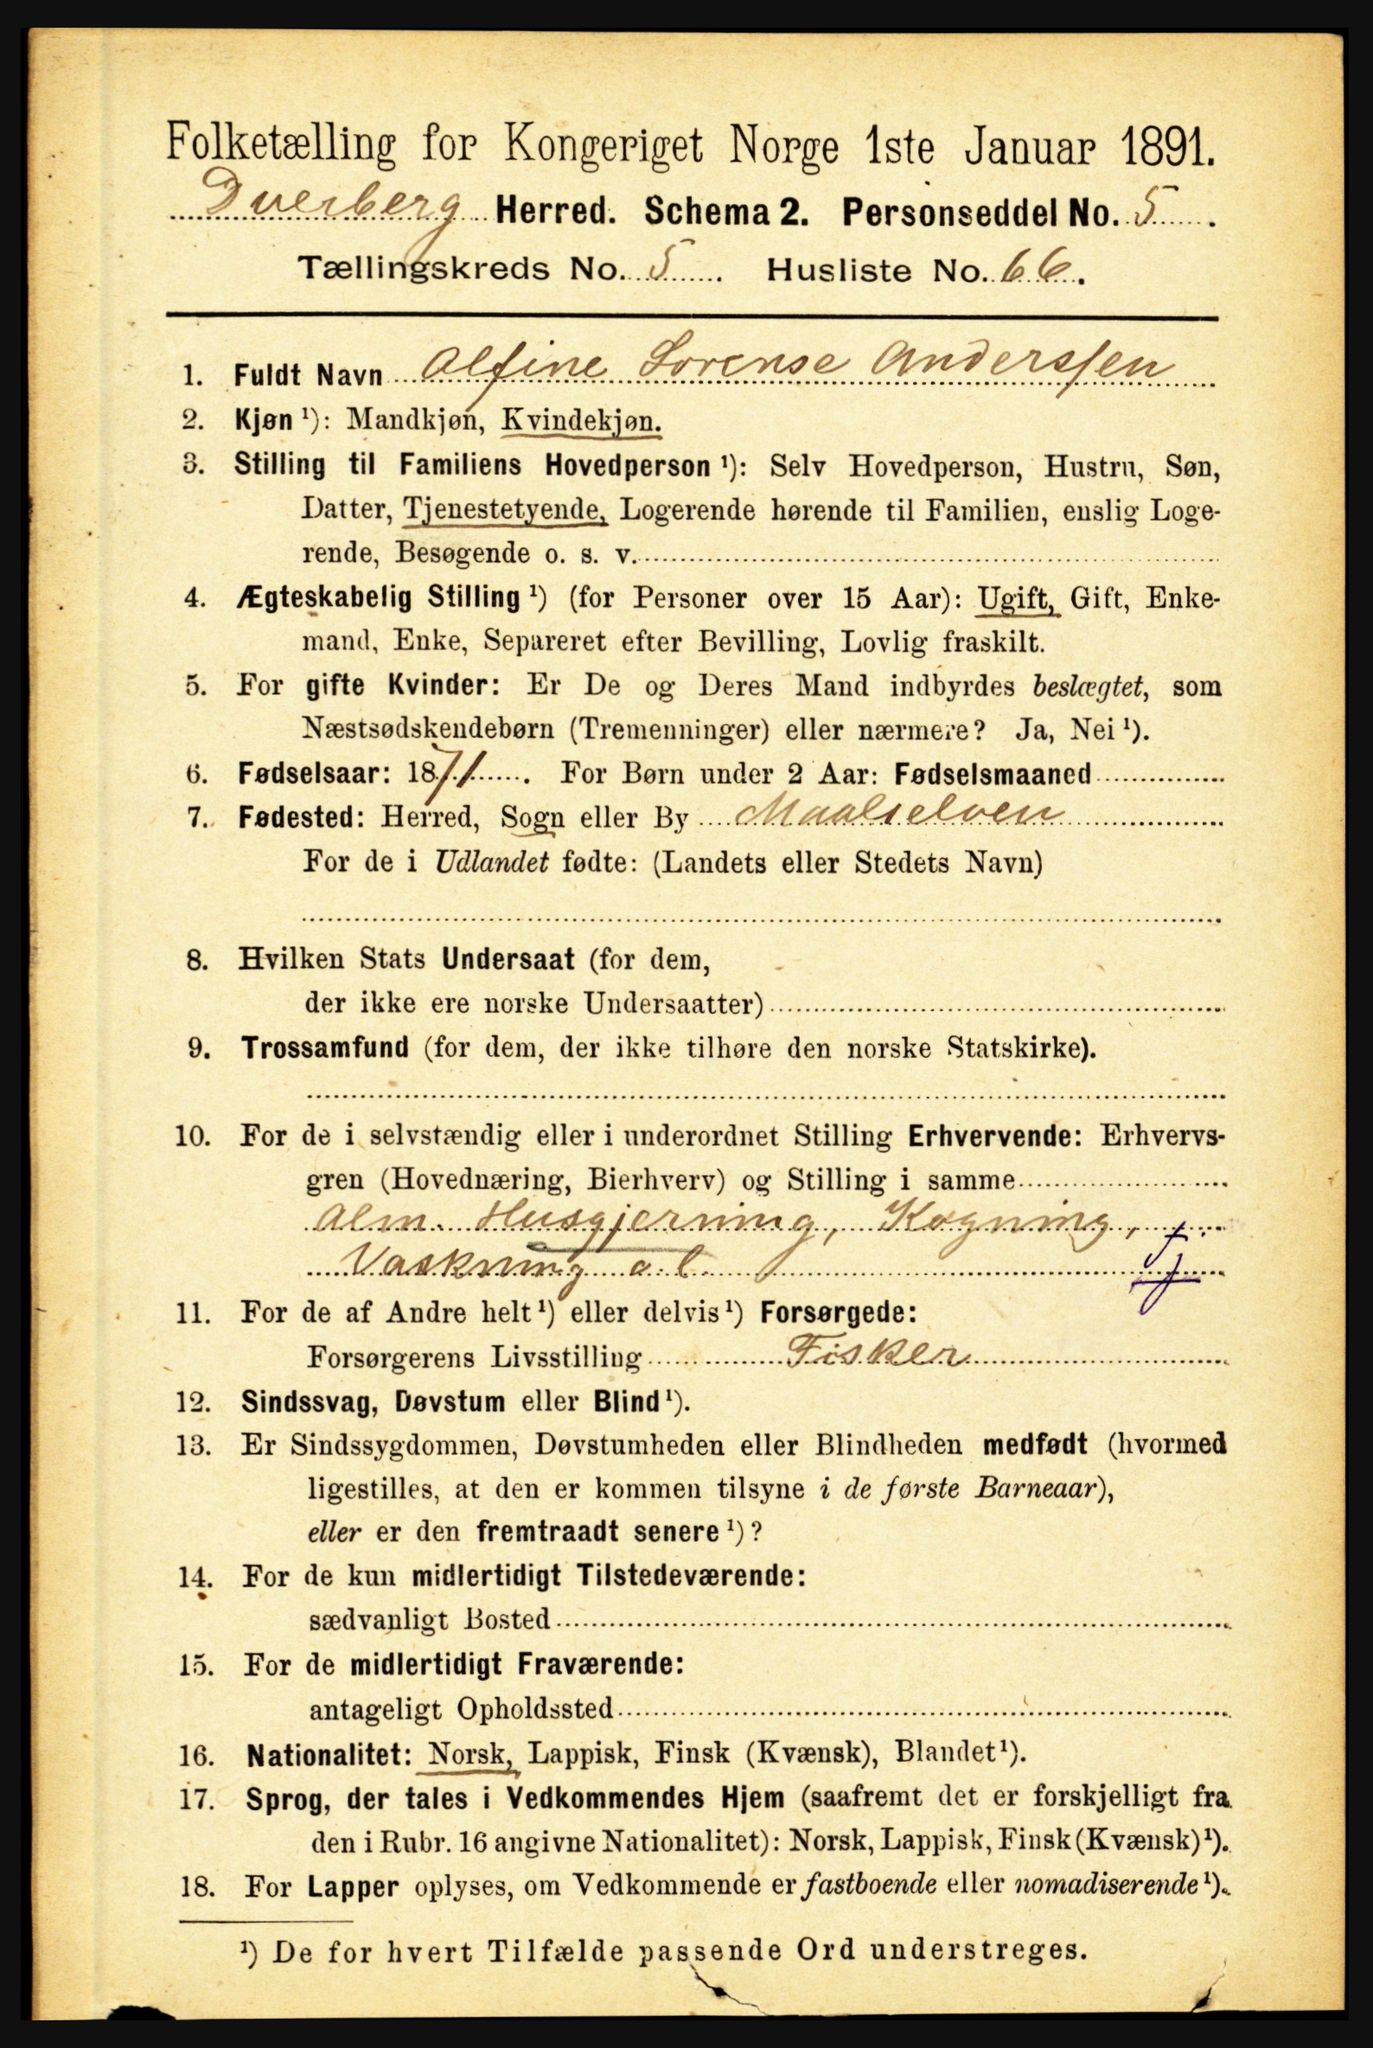 Folketælling for Kongeriget Norge 1ste Januar 1891.
Dverberg Herred. Schema 2. Personseddel No. 5.
Tællingskreds No. 5. Husliste No. 66.
1. Fuldt Navn Alfine Lorense Anderssen
2. Kjøn ¹): Mandkjøn, Kvindekjøn.
3. Stilling til Familiens Hovedperson ¹): Selv Hovedperson, Hustru, Søn,
Datter, Tjenestetyende, Logerende hørende til Familien, enslig Loge-
rende, Besøgende o. s. v.
4. Ægteskabelig Stilling ¹) (for Personer over 15 Aar): Ugift, Gift, Enke-
mand, Enke, Separeret efter Bevilling, Lovlig fraskilt.
5. For gifte Kvinder: Er De og Deres Mand indbyrdes beslægtet, som
Næstsødskendebørn (Tremenninger) eller nærmere? Ja, Nei ¹).
6. Fødselsaar: 1871. For Børn under 2 Aar: Fødselsmaaned
7. Fødested: Herred, Sogn eller By Maalselven
For de i Udlandet fødte: (Landets eller Stedets Navn)
8. Hvilken Stats Undersaat (for dem,
der ikke ere norske Undersaatter)
9. Trossamfund (for dem, der ikke tilhøre den norske Statskirke).
10. For de i selvstændig eller i underordnet Stilling Erhvervende: Erhvervs-
gren (Hovednæring, Bierhverv) og Stilling i samme
Alm. Husgjerning, Kogning,
Vaskning o. l.
11. For de af Andre helt ¹) eller delvis ¹) Forsørgede:
Forsørgerens Livsstilling Fisker
12. Sindssvag, Døvstum eller Blind ¹).
13. Er Sindssygdommen, Døvstumheden eller Blindheden medfødt (hvormed
ligestilles, at den er kommen tilsyne i de første Barneaar),
eller er den fremtraadt senere ¹)?
14. For de kun midlertidigt Tilstedeværende:
sædvanligt Bosted
15. For de midlertidigt Fraværende:
antageligt Opholdssted
16. Nationalitet: Norsk, Lappisk, Finsk (Kvænsk), Blandet ¹).
17. Sprog, der tales i Vedkommendes Hjem (saafremt det er forskjelligt fra
den i Rubr. 16 angivne Nationalitet): Norsk, Lappisk, Finsk (Kvænsk) ¹).
18. For Lapper oplyses, om Vedkommende er fastboende eller nomadiserende ¹).
¹) De for hvert Tilfælde passende Ord understreges.